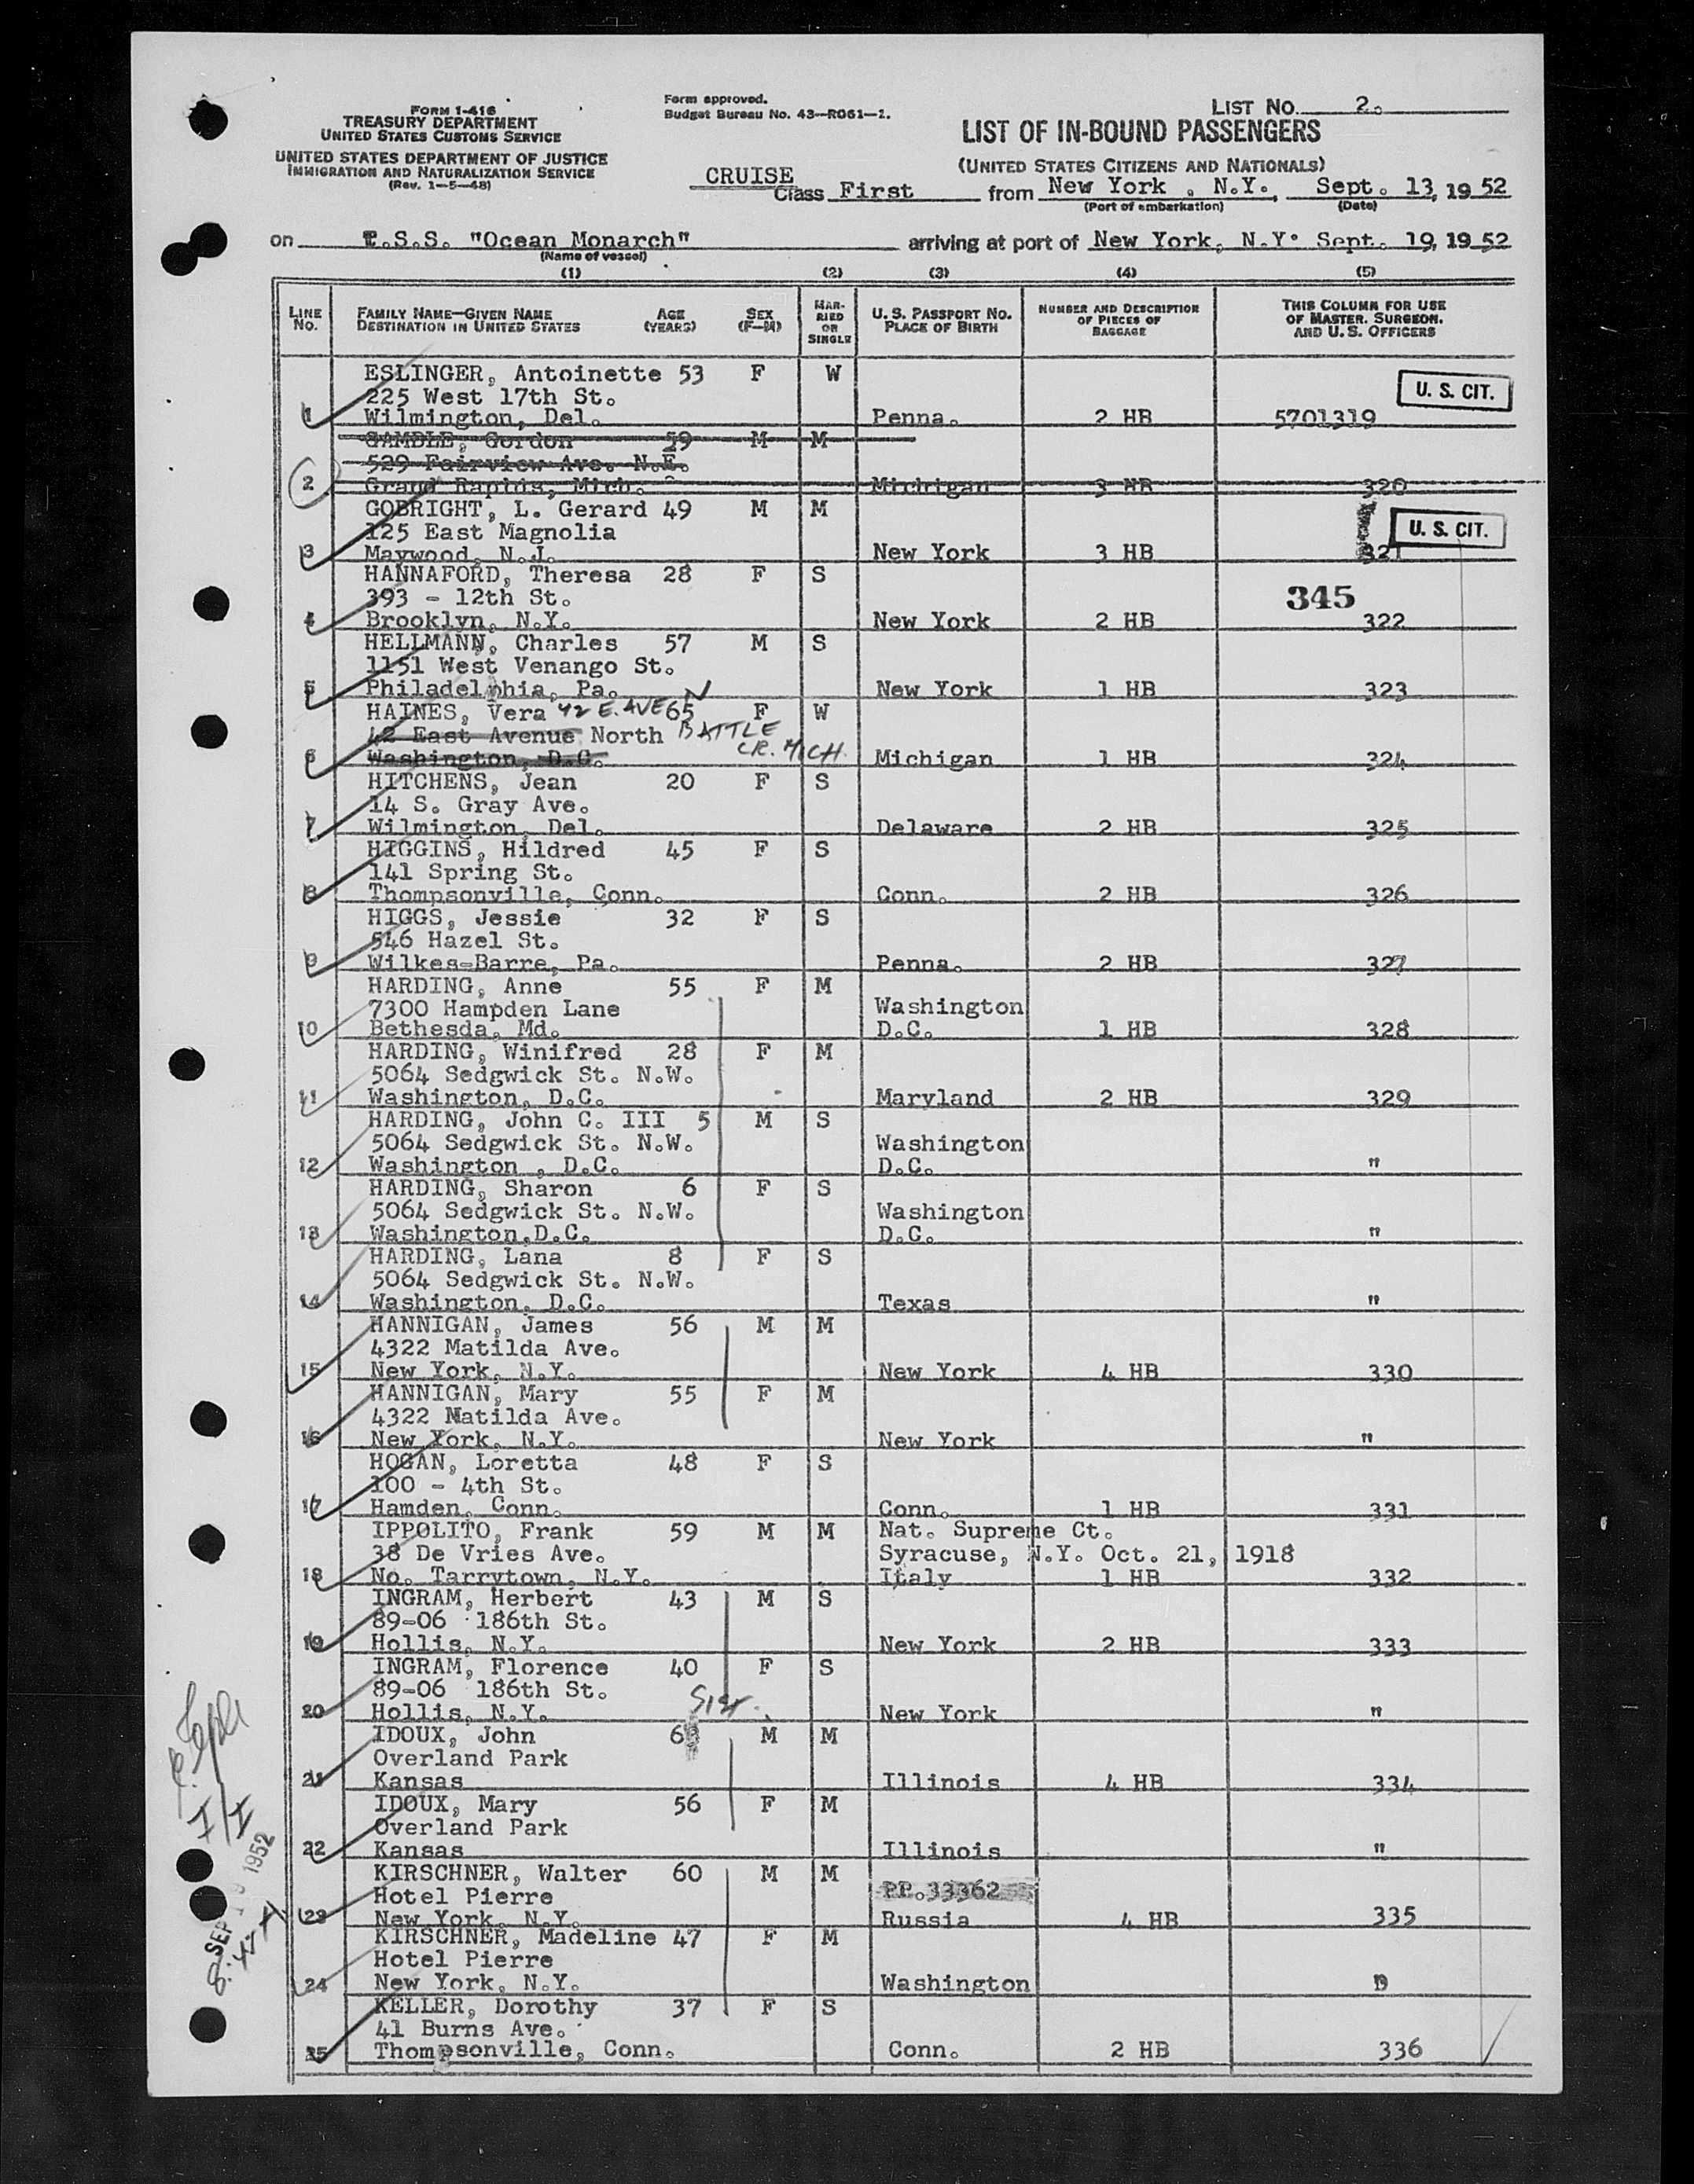 FORM 1-416
TREASURY DEPARTMENT
UNITED STATES CUSTOMS SERVICE
UNITED STATES DEPARTMENT OF JUSTICE
IMMIGRATION AND NATURALIZATION SERVICE
(Rev. 1-5-48)
Form approved.
Budget Bureau No. 43—R061—1.
LIST NO. 2.
LIST OF IN-BOUND PASSENGERS
(UNITED STATES CITIZENS AND NATIONALS)
CRUISE
Class First from New York , N.Y., Sept. 13, 19 52
(Port of embarkation) (Date)
on T.S.S. "Ocean Monarch" arriving at port of New York, N.Y. Sept. 19, 19 52
(Name of vessel)
(1) (2) (3) (4) (5)
LINE No. FAMILY NAME—GIVEN NAME DESTINATION IN UNITED STATES AGE (YEARS) SEX (F—M) MARRIED OR SINGLE U. S. PASSPORT NO. PLACE OF BIRTH NUMBER AND DESCRIPTION OF PIECES OF BAGGAGE THIS COLUMN FOR USE OF MASTER, SURGEON, AND U. S. OFFICERS
ESLINGER, Antoinette 53 F W
225 West 17th St. U. S. CIT.
1 Wilmington, Del. Penna. 2 HB 5701319
GAMBLE, Gordon 59 M M
529 Fairview Ave. N.E.
2 Grand Rapids, Mich. Michigan 3 HB 320
GOBRIGHT, L. Gerard 49 M M
125 East Magnolia U. S. CIT.
3 Maywood, N.J. New York 3 HB 321
HANNAFORD, Theresa 28 F S
393 - 12th St. 345
4 Brooklyn, N.Y. New York 2 HB 322
HELLMANN, Charles 57 M S
1151 West Venango St.
5 Philadelphia, Pa. New York 1 HB 323
HAINES, Vera 42 E. AVE N 65 F W
42 East Avenue North BATTLE
CR. MICH.
6 Washington, D.C. Michigan 1 HB 324
HITCHENS, Jean 20 F S
14 S. Gray Ave.
7 Wilmington, Del. Delaware 2 HB 325
HIGGINS, Hildred 45 F S
141 Spring St.
8 Thompsonville, Conn. Conn. 2 HB 326
HIGGS, Jessie 32 F S
546 Hazel St.
9 Wilkes-Barre, Pa. Penna. 2 HB 327
HARDING, Anne 55 F M
7300 Hampden Lane Washington
10 Bethesda, Md. D.C. 1 HB 328
HARDING, Winifred 28 F M
5064 Sedgwick St. N.W.
11 Washington, D.C. Maryland 2 HB 329
HARDING, John C. III 5 M S
5064 Sedgwick St. N.W. Washington
12 Washington , D.C. D.C. "
HARDING, Sharon 6 F S
5064 Sedgwick St. N.W. Washington
13 Washington,D.C. D.C. "
HARDING, Lana 8 F S
5064 Sedgwick St. N.W.
14 Washington, D.C. Texas "
HANNIGAN, James 56 M M
4322 Matilda Ave.
15 New York, N.Y. New York 4 HB 330
HANNIGAN, Mary 55 F M
4322 Matilda Ave.
16 New York, N.Y. New York "
HOGAN, Loretta 48 F S
100 - 4th St.
17 Hamden, Conn. Conn. 1 HB 331
IPPOLITO, Frank 59 M M Nat. Supreme Ct.
38 De Vries Ave. Syracuse, N.Y. Oct. 21, 1918
18 No. Tarrytown, N.Y. Italy 1 HB 332
INGRAM, Herbert 43 M S
89-06 186th St.
19 Hollis, N.Y. New York 2 HB 333
INGRAM, Florence 40 F S
89-06 186th St. Sist.
20 Hollis, N.Y. New York "
IDOUX, John M M
Overland Park
21 Kansas Illinois 4 HB 334
IDOUX, Mary 56 F M
Overland Park
22 Kansas Illinois "
KIRSCHNER, Walter 60 M M
Hotel Pierre PP.33362
23 New York, N.Y. Russia 4 HB 335
KIRSCHNER, Madeline 47 F M
Hotel Pierre
24 New York, N.Y. Washington "
KELLER, Dorothy 37 F S
41 Burns Ave.
25 Thompsonville, Conn. Conn. 2 HB 336
I/I
SEP 19 1952